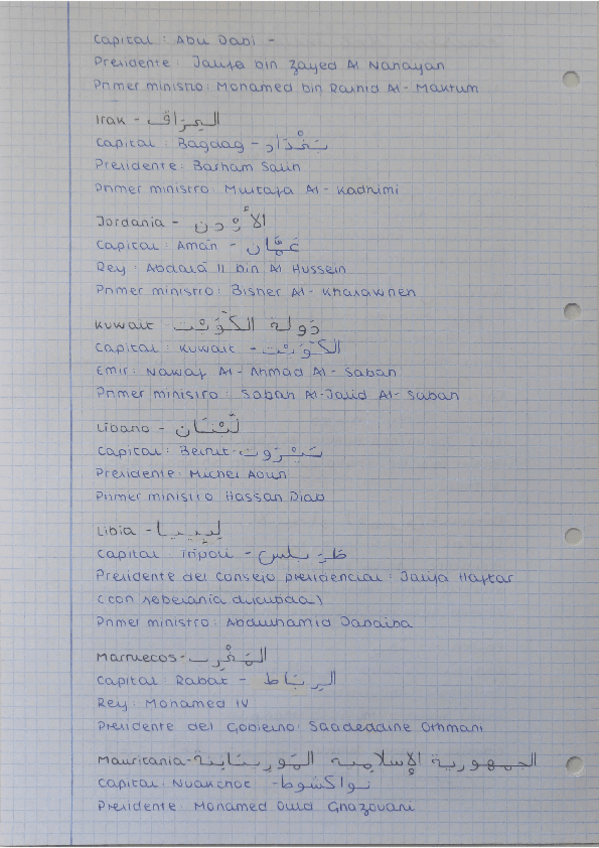 Capital: Abu Dabi -
Presidente: Jalifa bin Zayed Al Nahayan
Primer ministro: Mohamed bin Rashid Al-Maktum
Irak - العِرَاق
Capital: Bagdag - بَغْدَاد
Presidente: Barham Salih
Primer ministro: Mustafa Al-Kadhimi
Jordania - الأُرْدن
Capital: Amán - عَمَّان
Rey: Abdalá II bin Al Hussein
Primer ministro: Bisher Al-Khasawneh
Kuwait - دَولة الكُوَيْت
Capital: Kuwait - الكُوَيْت
Emir: Nawaf Al-Ahmad Al-Sabah
Primer ministro: Sabah Al-Jalid Al-Sabah
Líbano - لُبْنَان
Capital: Beirut - بَيْرُوت
Presidente: Michel Aoun
Primer ministro Hassan Diab
Libia - ليبيا
Capital: Trípoli -
Presidente del consejo presidencial: Jalifa Haftar
(con soberanía disputada)
Primer ministro: Abdulhamid Dabaiba
Marruecos - المَغْرِب
Capital: Rabat - الرِبَاط
Rey: Mohamed IV
Presidente del Gobierno: Saadeddine Othmani
Mauritania - الجمهورية الإسلامية المَوريتانية
Capital: Nuakchot - نواكشوط
Presidente: Mohamed Ould Ghazouani